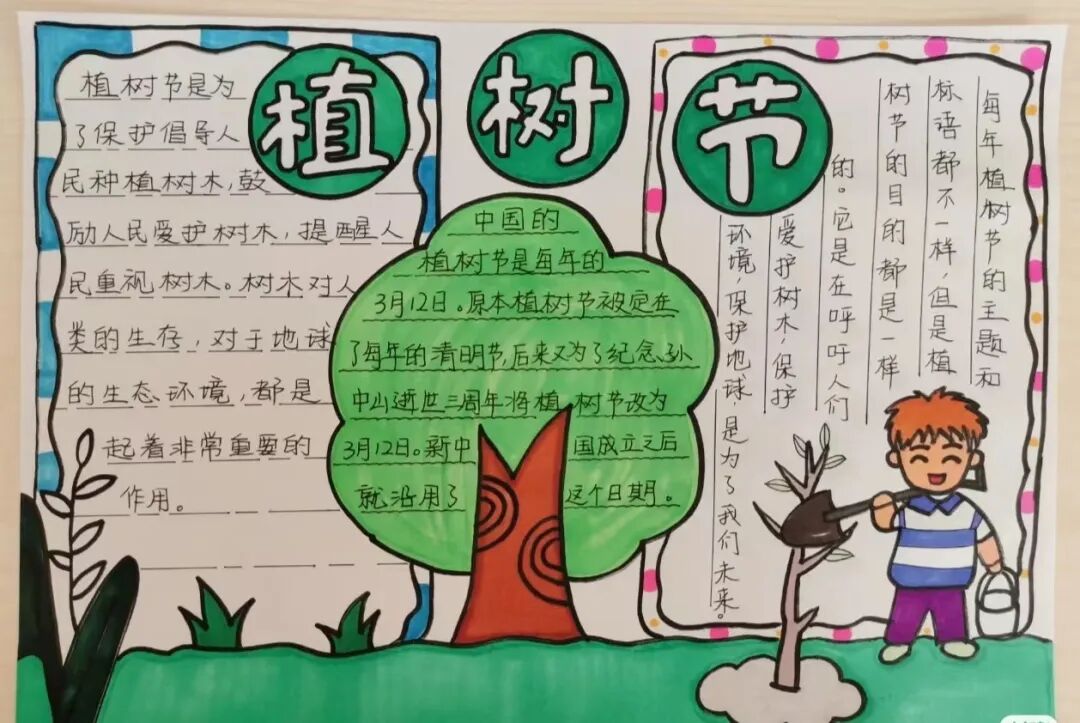 植树节
植树节是为
了保护倡导人
民种植树木，鼓
励人民爱护树木，提醒人
民重视树木。树木对人
类的生存，对于地球
的生态环境，都是
起着非常重要的
作用。
中国的
植树节是每年的
3月12日。原本植树节被定在
了每年的清明节，后来又为了纪念孙
中山逝世三周年将植树节改为
3月12日。新中国成立之后
就沿用了这个日期。
每年植树节的主题和
标语都不一样，但是植
树节的目的都是一样
的。它是在呼吁人们
爱护树木，保护
环境，保护地球是为了我们未来。